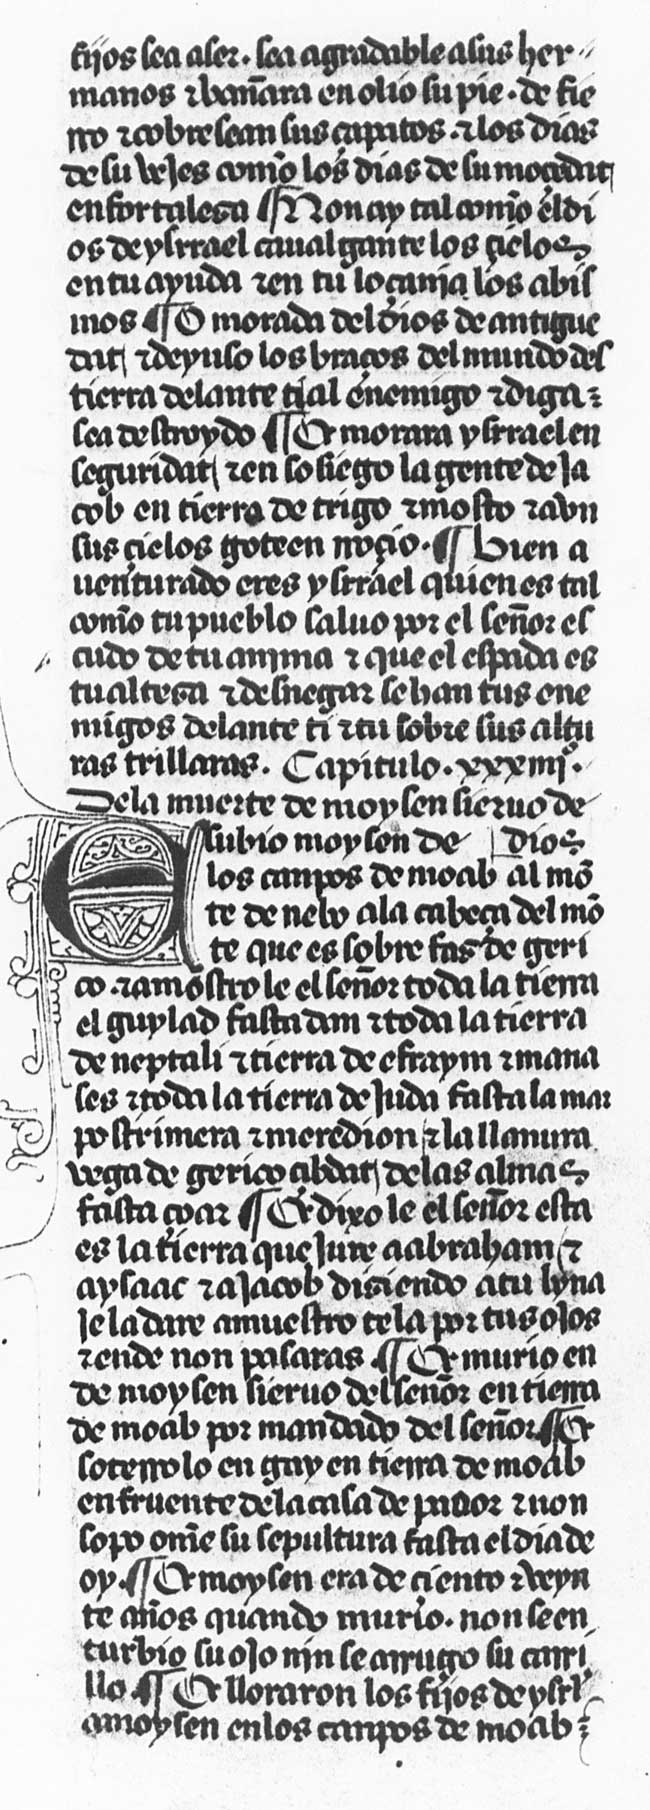 fijos sea aser. sea agradable a sus her
manos ⁊ bañara en olio su pie. de fie
rro ⁊ cobre sean sus çapatos. ⁊ los dias
de su vejes como los dias de su moçedat
en fortalesa ¶ Non ay tal como el di
os de ysrrael caualgante los çielos
en tu ayuda ⁊ en tu loçania los abis
mos ¶ O morada del dios de antigue
dat ⁊ de yuso los braços del mundo des
tierra delante ti al enemigo ⁊ diga
sea destroydo ¶ Et morara ysrrael en
seguridat ⁊ en sosiego la gente de ja
cob en tierra de trigo ⁊ mosto ⁊ avn
sus çielos goteen roçio. ¶ bien a
uenturado eres ysrrael quien es tal
como tu pueblo saluo por el señor es
cudo de tu anima ⁊ que el espada es
tu altesa ⁊ desnegar se han tus ene
migos delante ti ⁊ tu sobre sus altu
ras trillaras. Capitulo. xxxiiijº.
De la muerte de moysen sieruo de
E subio moysen de dios
los canpos de moab al mõ
te de nebo a la cabeça del mõ
te que es sobre fas de geri
co. ⁊ amostro le el señor toda la tierra
el guylad fasta dan ⁊ toda la tierra
de neptali ⁊ tierra de efraym ⁊ mana
ses ⁊ toda la tierra de juda fasta la mar
postrimera ⁊ meredion ⁊ la llanura
vega de gerico çibdat de las almas
fasta çoar ¶ Et dixo le el señor esta
es la tierra que jure a abraham ⁊
a ysaac ⁊ a jacob disiendo a tu lyna
je la dare amuestro te la por tus ojos
⁊ ende non pasaras. ¶ Et murio en
de moysen sieruo del señor en tierra
de moab por mandado del señor ¶ Et
soterro lo en gay en tierra de moab
en fruente de la casa de peor ⁊ non
sopo omẽ su sepultura fasta el dia de
oy. ¶ Et moysen era de ciento ⁊ veyn
te años quando murio. non se en
turbio su ojo nin se arrugo su carri
llo. ¶ Et lloraron los fijos de ysrl
a moysen en los canpos de moab